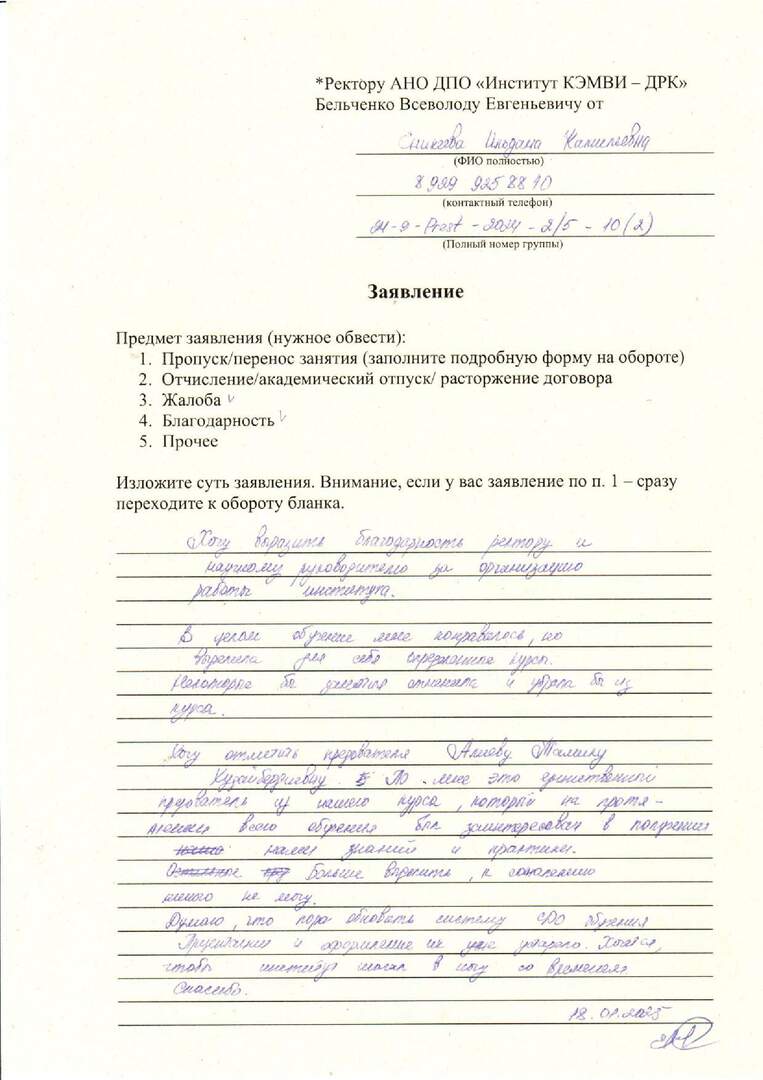 *Ректору АНО ДПО «Институт КЭМВИ – ДРК»
Бельченко Всеволоду Евгеньевичу от
(ФИО полностью)
8 929 925 88 10
(контактный телефон)
-9-Prest-2024-2/5-10(2)
(Полный номер группы)
Заявление
Предмет заявления (нужное обвести):
1. Пропуск/перенос занятия (заполните подробную форму на обороте)
2. Отчисление/академический отпуск/ расторжение договора
3. Жалоба
4. Благодарность
5. Прочее
Изложите суть заявления. Внимание, если у вас заявление по п. 1 – сразу
переходите к обороту бланка.
Хочу выразить благодарность ректору и
научному руководителю за организацию
работы института.
В целом обучение мне понравилось, но
выделила для себя определённые курсы.
Некоторые бы занятия отменила и убрала бы из
курса.
Хочу отметить Алиеву Тамилу
По мне это единственный
из нашего курса, который на протя-
жении всего обучения был заинтересован в получении
нами знаний и практики.
Больше выделить, к сожалению
никого не могу.
Думаю, что пора обновить систему СДО обучения
Презентации и оформление их уже устарело. Хочется,
чтобы институт шагал в ногу со временем
Спасибо.
18.01.2025